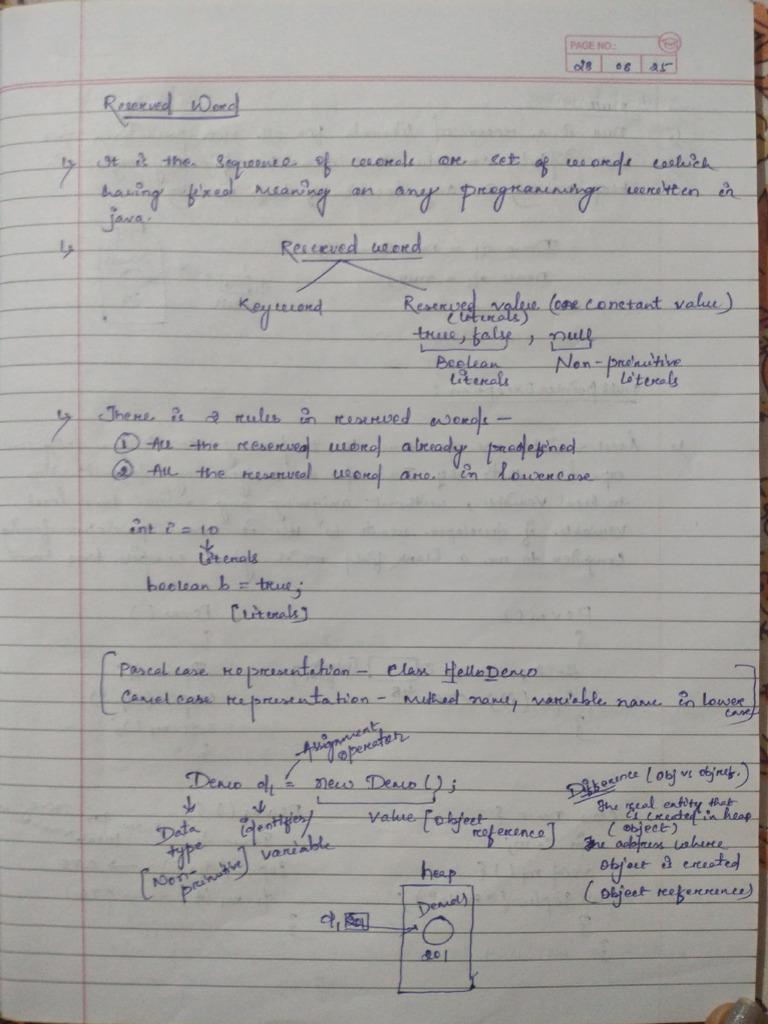 PAGE NO.:
28 08 25
Reserved Word
↳ It is the sequence of words or set of words which
having fixed meaning on any programming written in
java.
↳ Reserved word
Keyword Reserved value (or constant value)
(literals)
true, false , null
Boolean Non-primitive
literals literals
↳ There is 2 rules in reserved words -
① All the reserved word already predefined
② All the reserved word are in lowercase
int i = 10
↓
literals
boolean b = true;
[literals]
Pascal case representation - Class HelloDemo
Camel case representation - method name, variable name in lower
case
Assignment
operator
Demo d1 = new Demo();
Data
type
[Non-
primitive]
identifier/
variable
value [object
reference]
Difference (obj vs objref.)
The real entity that
is created in heap
(object)
The address where
object is created
(object referrence)
heap
d1
201